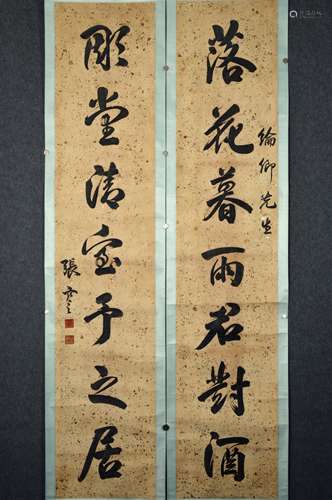 落花暮雨君對酒
綸卿先生
彫堂清室予之居
張